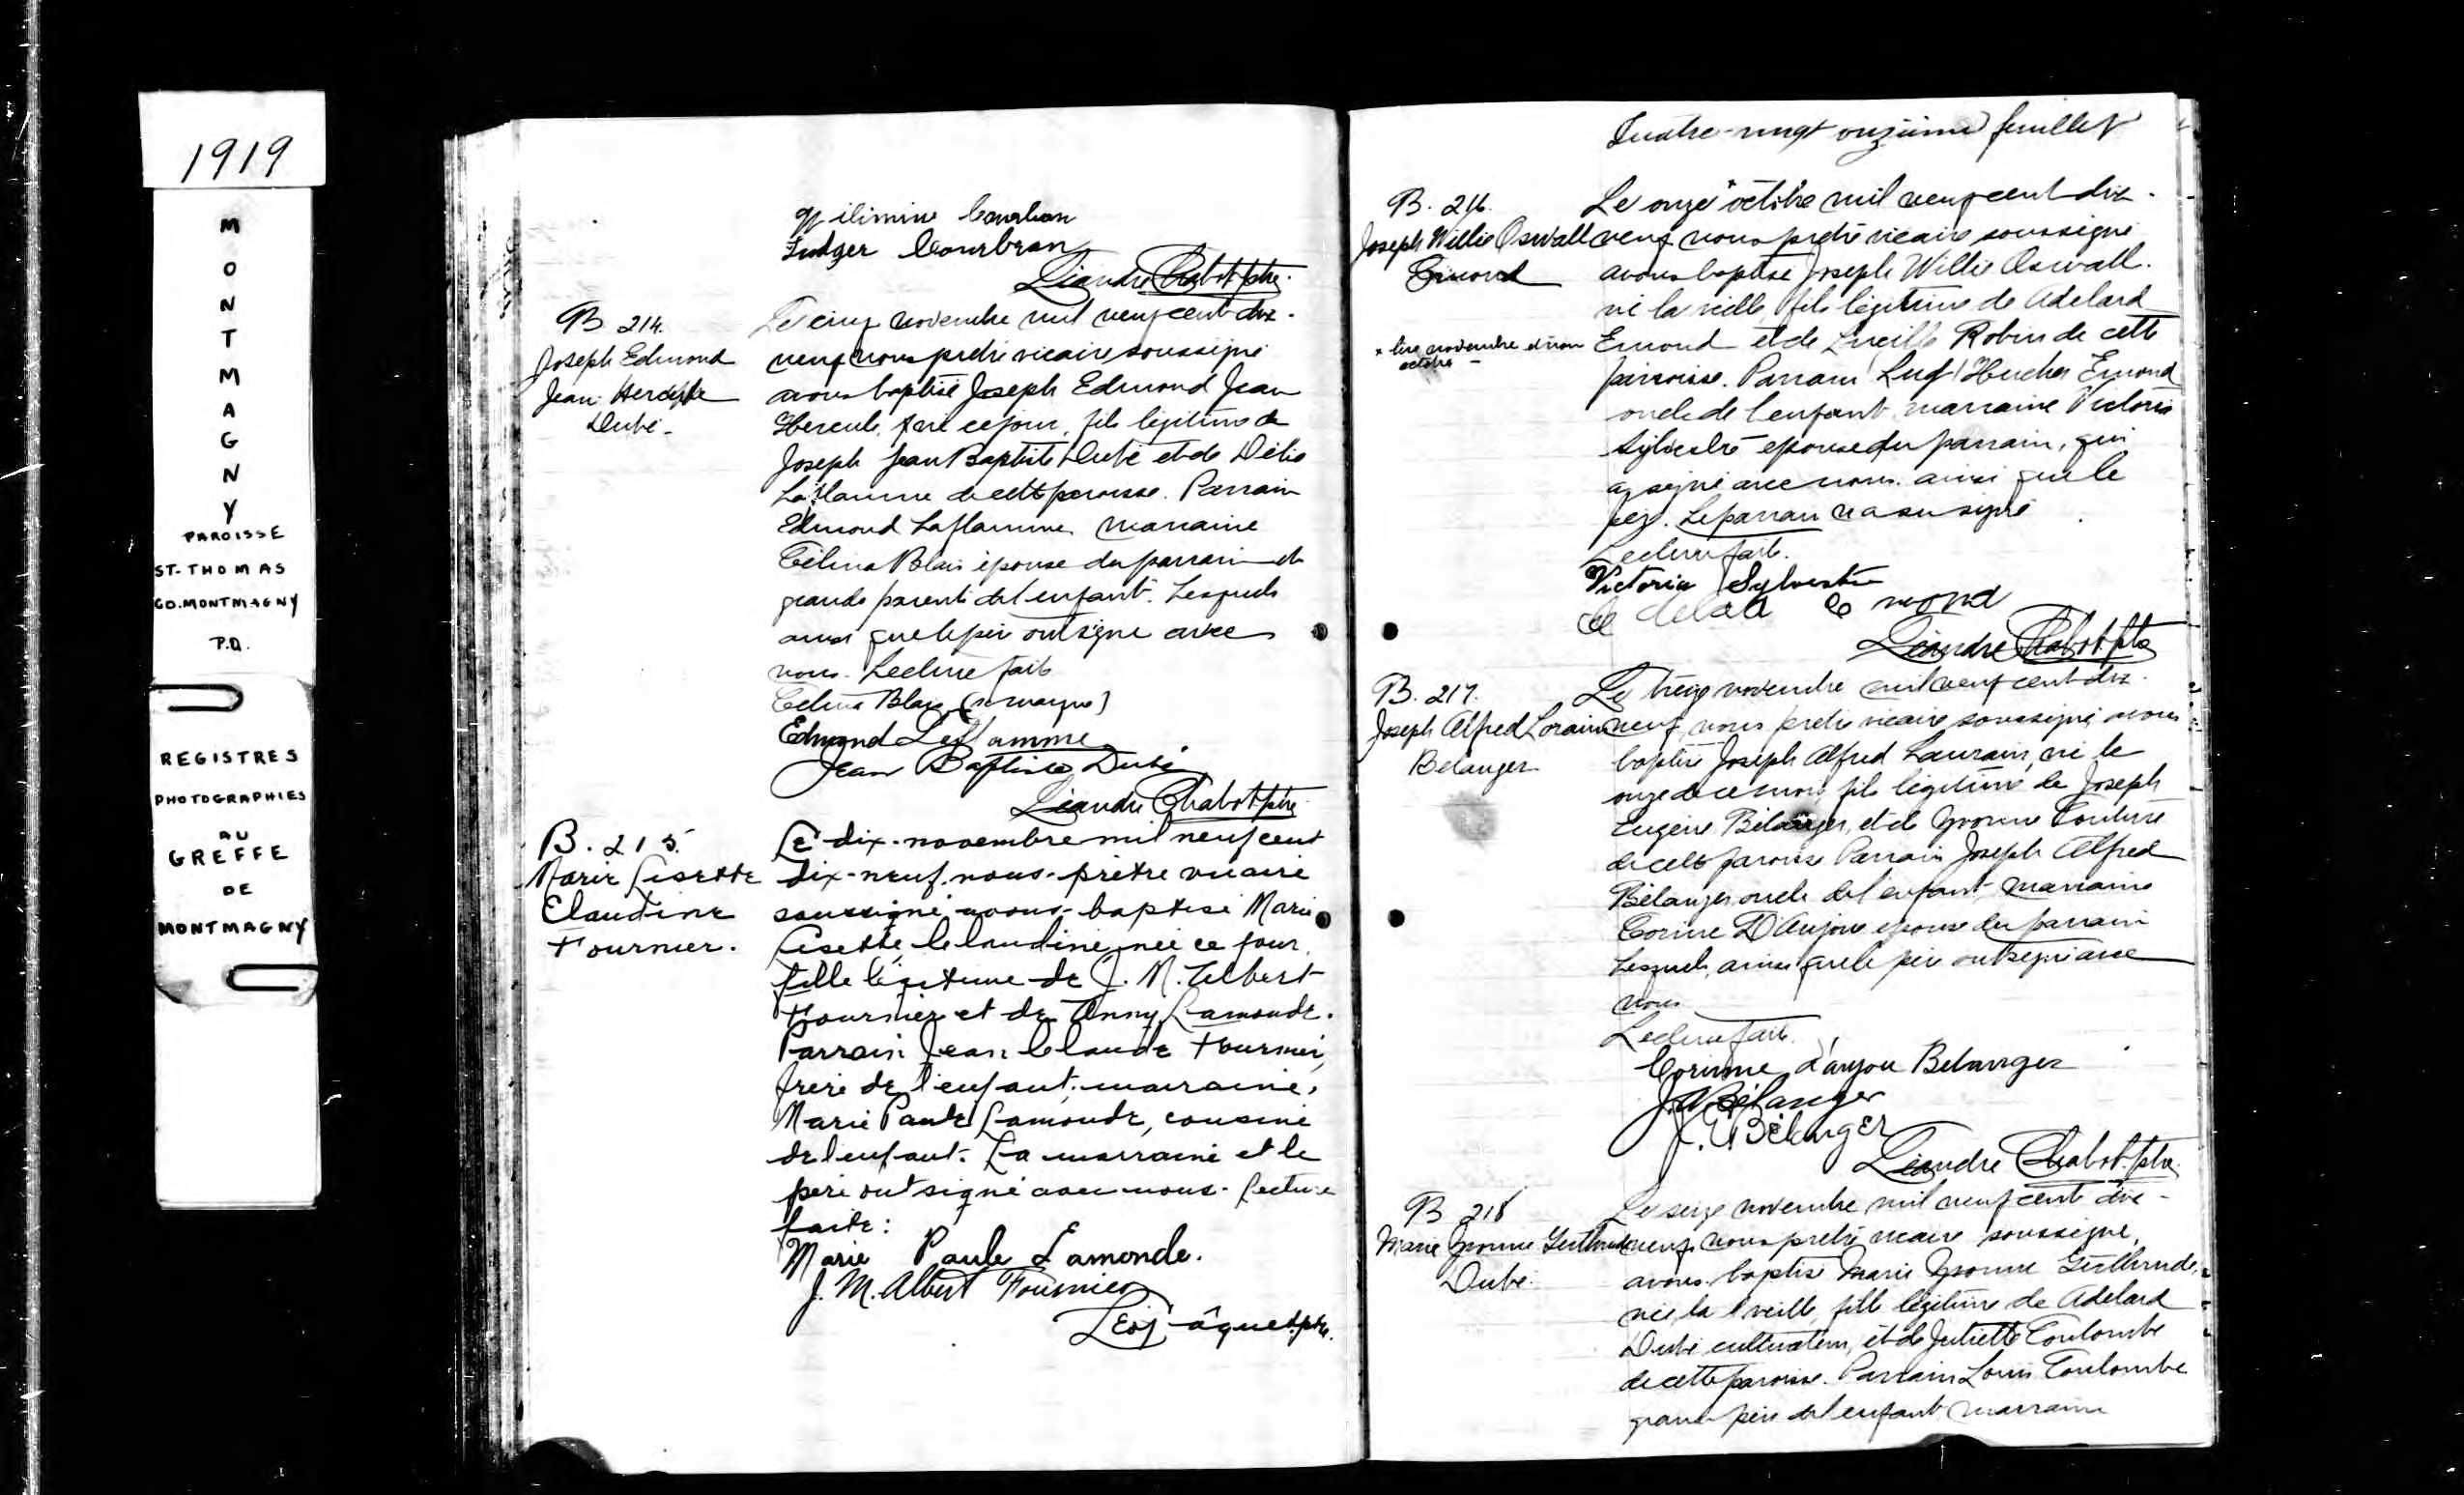 1919
MONTMAGNY
PAROISSE
ST-THOMAS
CO. MONTMAGNY
P.Q.
REGISTRES
PHOTOGRAPHIES
AU
GREFFE
DE
MONTMAGNY
Ludger Courbron
Léandre Chabot ptre.
B 214.
Joseph Edmond
Jean Hercule
Dubé
Le cinq novembre mil neuf cent dix-
neuf nous prêtre vicaire soussigné
avons baptisé Joseph Edmond Jean
Hercule, né ce jour, fils légitime de
Joseph Jean Baptiste Dubé et de Délia
Laflamme de cette paroisse. Parrain
Edmond Laflamme marraine
Célina Blais épouse du parrain et
grands parents de l'enfant. Lesquels
ainsi que le père ont signé avec
nous. Lecture faite
Celina Blais
Edmond Laflamme
Jean Baptiste Dubé
Léandre Chabot ptre.
B. 215.
Marie Lisette
Claudine
Fournier.
Le dix-novembre mil neuf cent
dix-neuf. nous-prêtre vicaire
soussigné avons-baptisé Marie
Lisette, Claudine, née ce jour,
fille légitime de J. M. Albert
Fournier et de Anny Lamonde.
Parrain Jean Claude Fournier,
frère de l'enfant; marraine,
Marie Paule Lamonde, cousine
de l'enfant. La marraine et le
père ont signé avec nous. Lecture
faite:
Marie Paule Lamonde.
J. M. Albert Fournier
Léo Jâques ptre.
Quatre-vingt onzième feuillet
B. 216.
Joseph Willie Oswall
Emond
* lire novembre et non
octobre -
Le onze * octobre mil neuf cent dix-
neuf nous prêtre vicaire soussigné
avons baptisé Joseph Willie Oswall.
né la veille, fils légitime de Adelard
Emond et de Lucille Robin de cette
paroisse. Parrain Emond
oncle de l'enfant marraine Victoria
Sylvestre épouse du parrain, qui
a signé avec nous. ainsi que le
père. Le parrain n'a su signé
Lecture faite.
Victoria Sylvestre
Adelard Emond
Léandre Chabot ptre
B. 217.
Joseph Alfred Lorain
Belanger
Le treize novembre mil neuf cent dix-
neuf, nous prêtre vicaire soussigné avons
baptisé Joseph Alfred Laurain, né le
onze de ce mois, fils légitime de Joseph
Eugène Bélanger, et de Yvonne Couture
de cette paroisse Parrain Joseph Alfred
Bélanger oncle de l'enfant, marraine
Corine D'Anjou épouse du parrain
Lesquels, ainsi que le père ont signé avec
nous
Lecture faite.
Corinne d'anjou Belanger
J. A. Bélanger
J. E. Bélanger
Léandre Chabot. ptre.
B 218
Marie Yvonne Gertrude
Dubé.
Le seize novembre mil neuf cent dix-
neuf, nous prêtre vicaire soussigné,
avons baptisé Marie Yvonne Gerthrude,
née la veille, fille légitime de Adelard
Dubé cultivateur, et de Juliette Coulombe
de cette paroisse. Parrain Louis Coulombe
grand-père de l'enfant, marraine